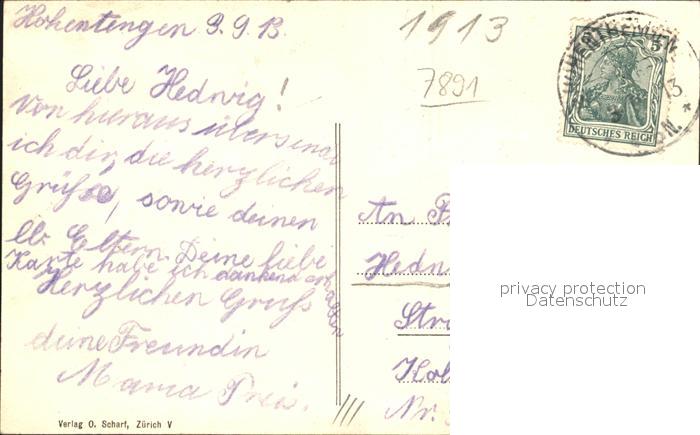 Hohentengen 3.9.13.
1913
7891
Liebe Hedwig!
Von hieraus übersende
ich dir, die herzlichen
Grüße, sowie deinen
lb. Eltern. Deine liebe
Karte habe ich dankend erhalten
Herzlichen Gruß
deine Freundin
Maria
Verlag O. Scharf, Zürich V
5
DEUTSCHES REICH
13
An
Hedw
Str
Nr.
privacy protection
Datenschutz